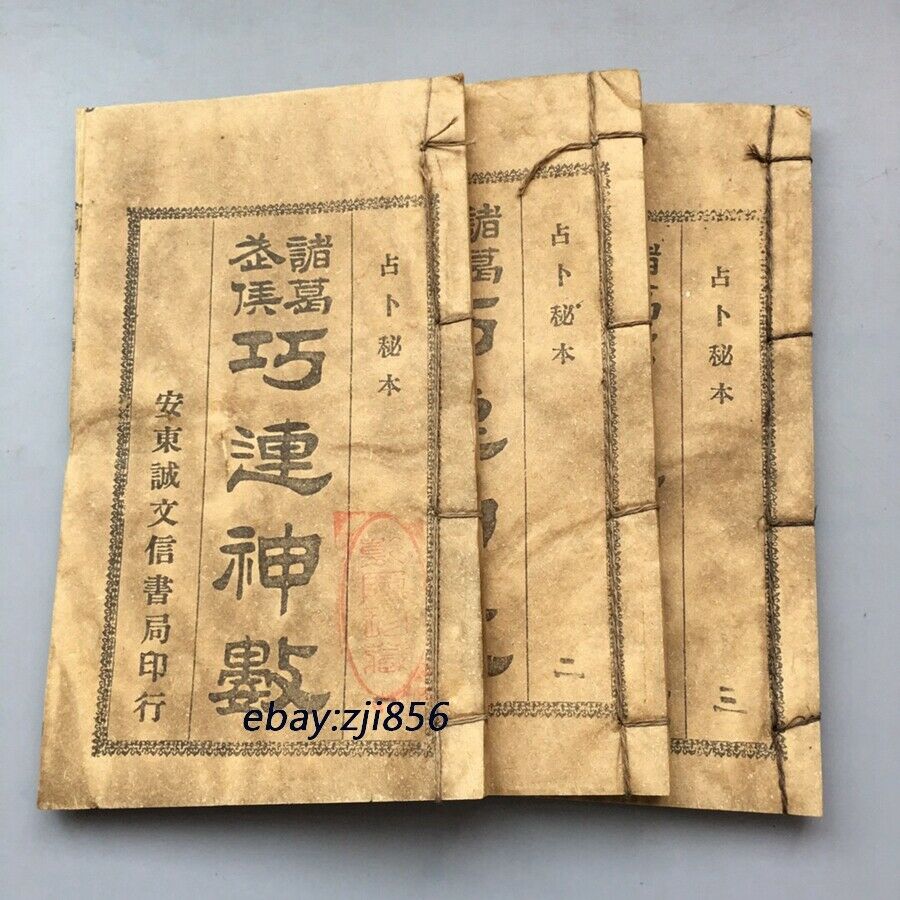 占卜秘本
諸葛
武侯
巧連神數
安東誠文信書局印行
占卜秘本
諸葛
二
占卜秘本
三
ebay:zji856